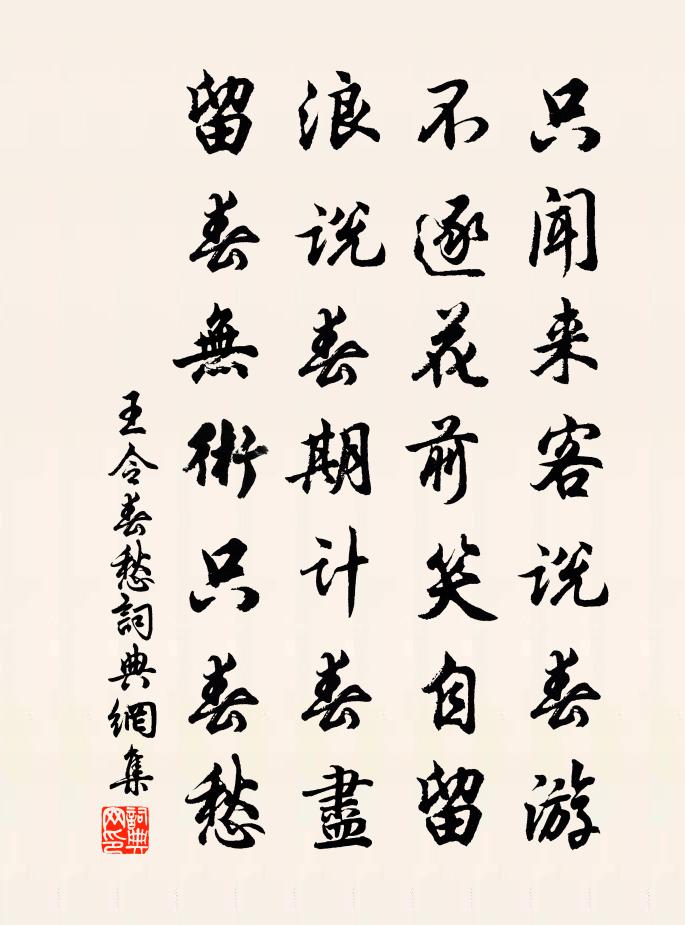 只闻来客说春游
不逐花前笑自留
浪说春期计春盡
留春無術只春愁
王令春愁詞典網集
詞典網印